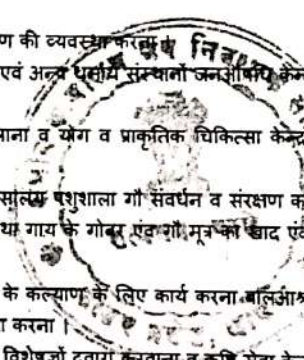 ण की व्यवस्था करना।
एवं अन्य धर्मार्थ संस्थानों जनऔषधि केन
माना व योग व प्राकृतिक चिकित्सा केन्द्र
पशुशाला गौ संवर्धन व संरक्षण क
था गाय के गोबर एवं गौ मूत्र का खाद एवं
के कल्याण के लिए कार्य करना बालआश्र
ा करना।
विशेषज्ञों द्वारा करवाना व कृषि